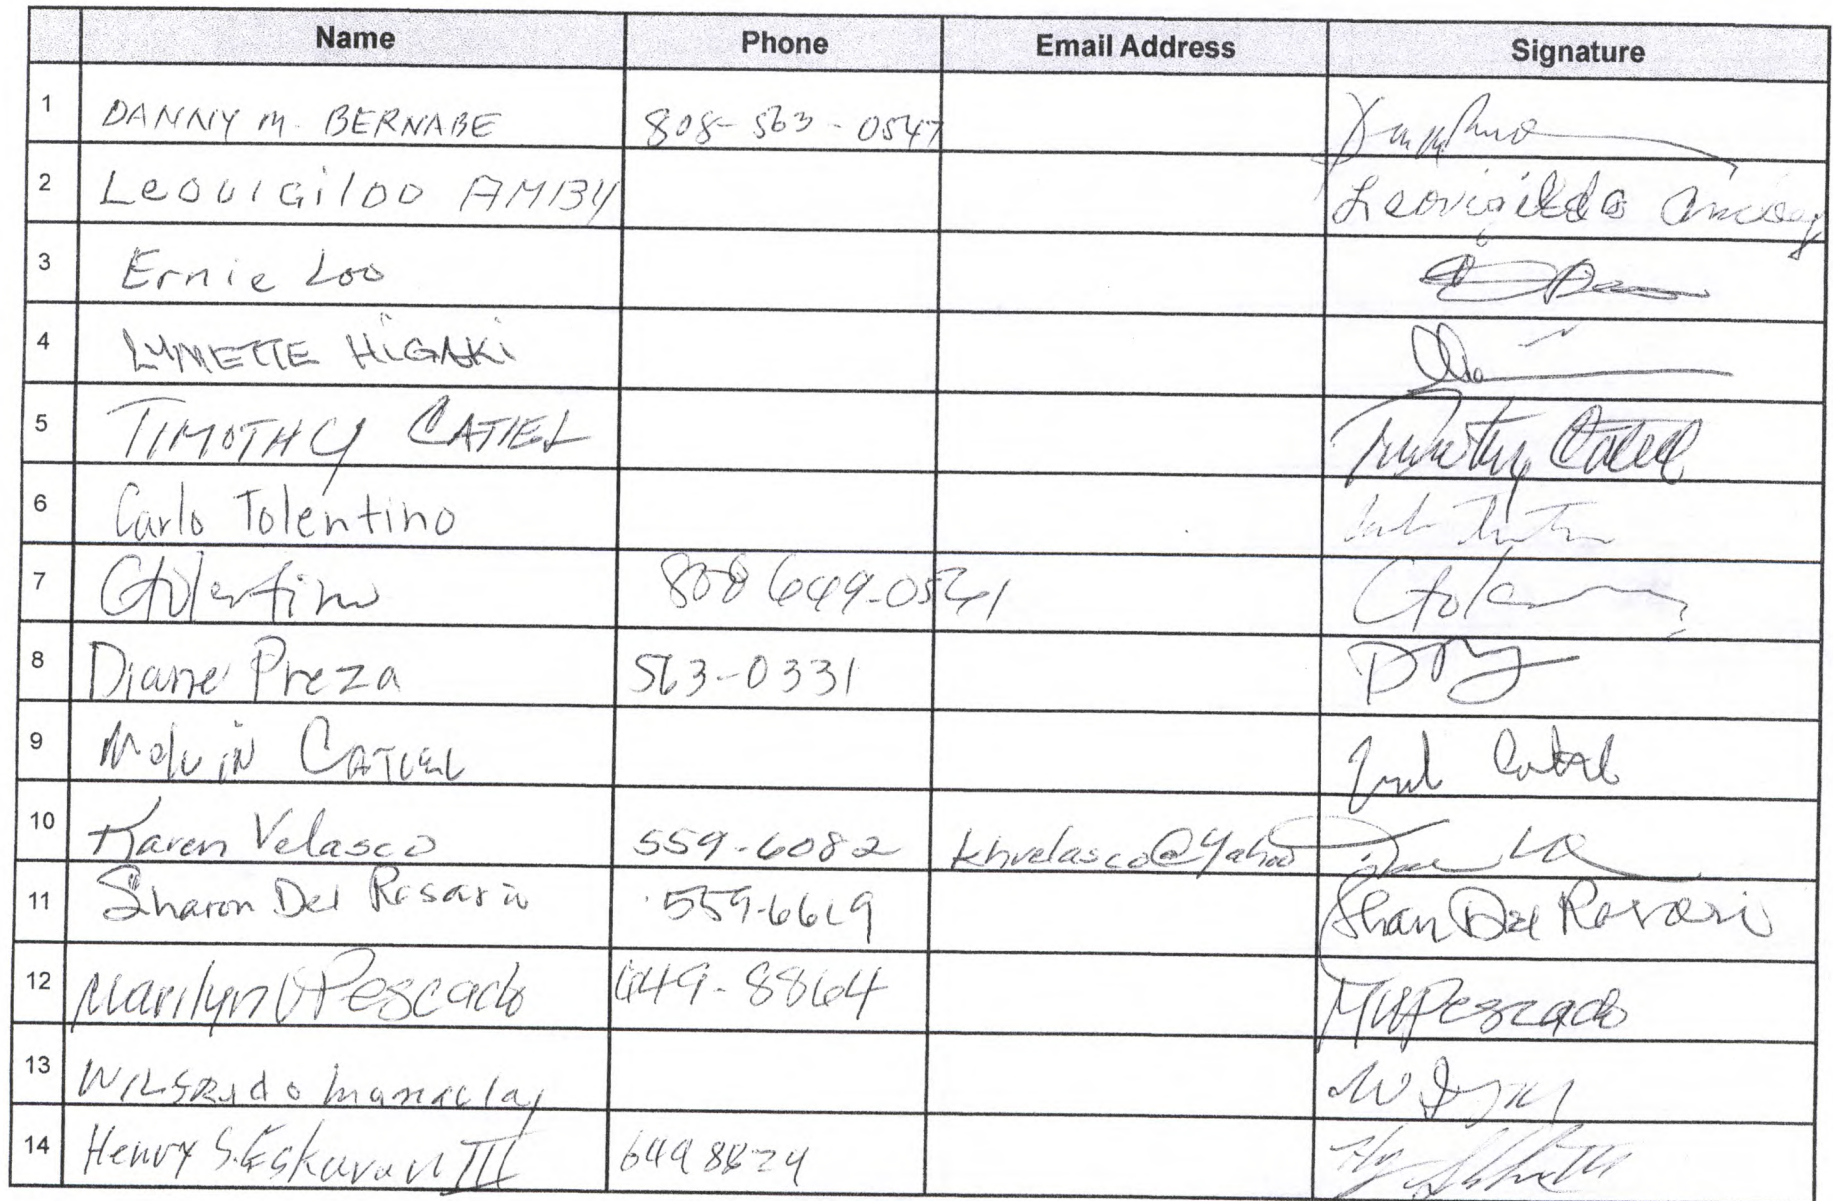 Name Phone Email Address Signature
1 DANNY M. BERNABE 808-563-0547
2 Leovigildo AMBY Leovigildo
3 Ernie Loo
4 LYNETTE HiGAKi
5 TIMOTHY CATIEL Timothy Catiel
6 Carlo Tolentino
7 Ctolentino 808 649-0561
8 Diane Preza 563-0331
9 Melvin CATIEL
10 Karen Velasco 559-6082 khvelasco@Yahoo
11 Sharon Del Rosario 559-6619 Sharon Del Rosario
12 Marilyn V Pescado 649-8864 MVPescado
13 WILFRIdo
14 Henry S. Eskaran III 649 8824